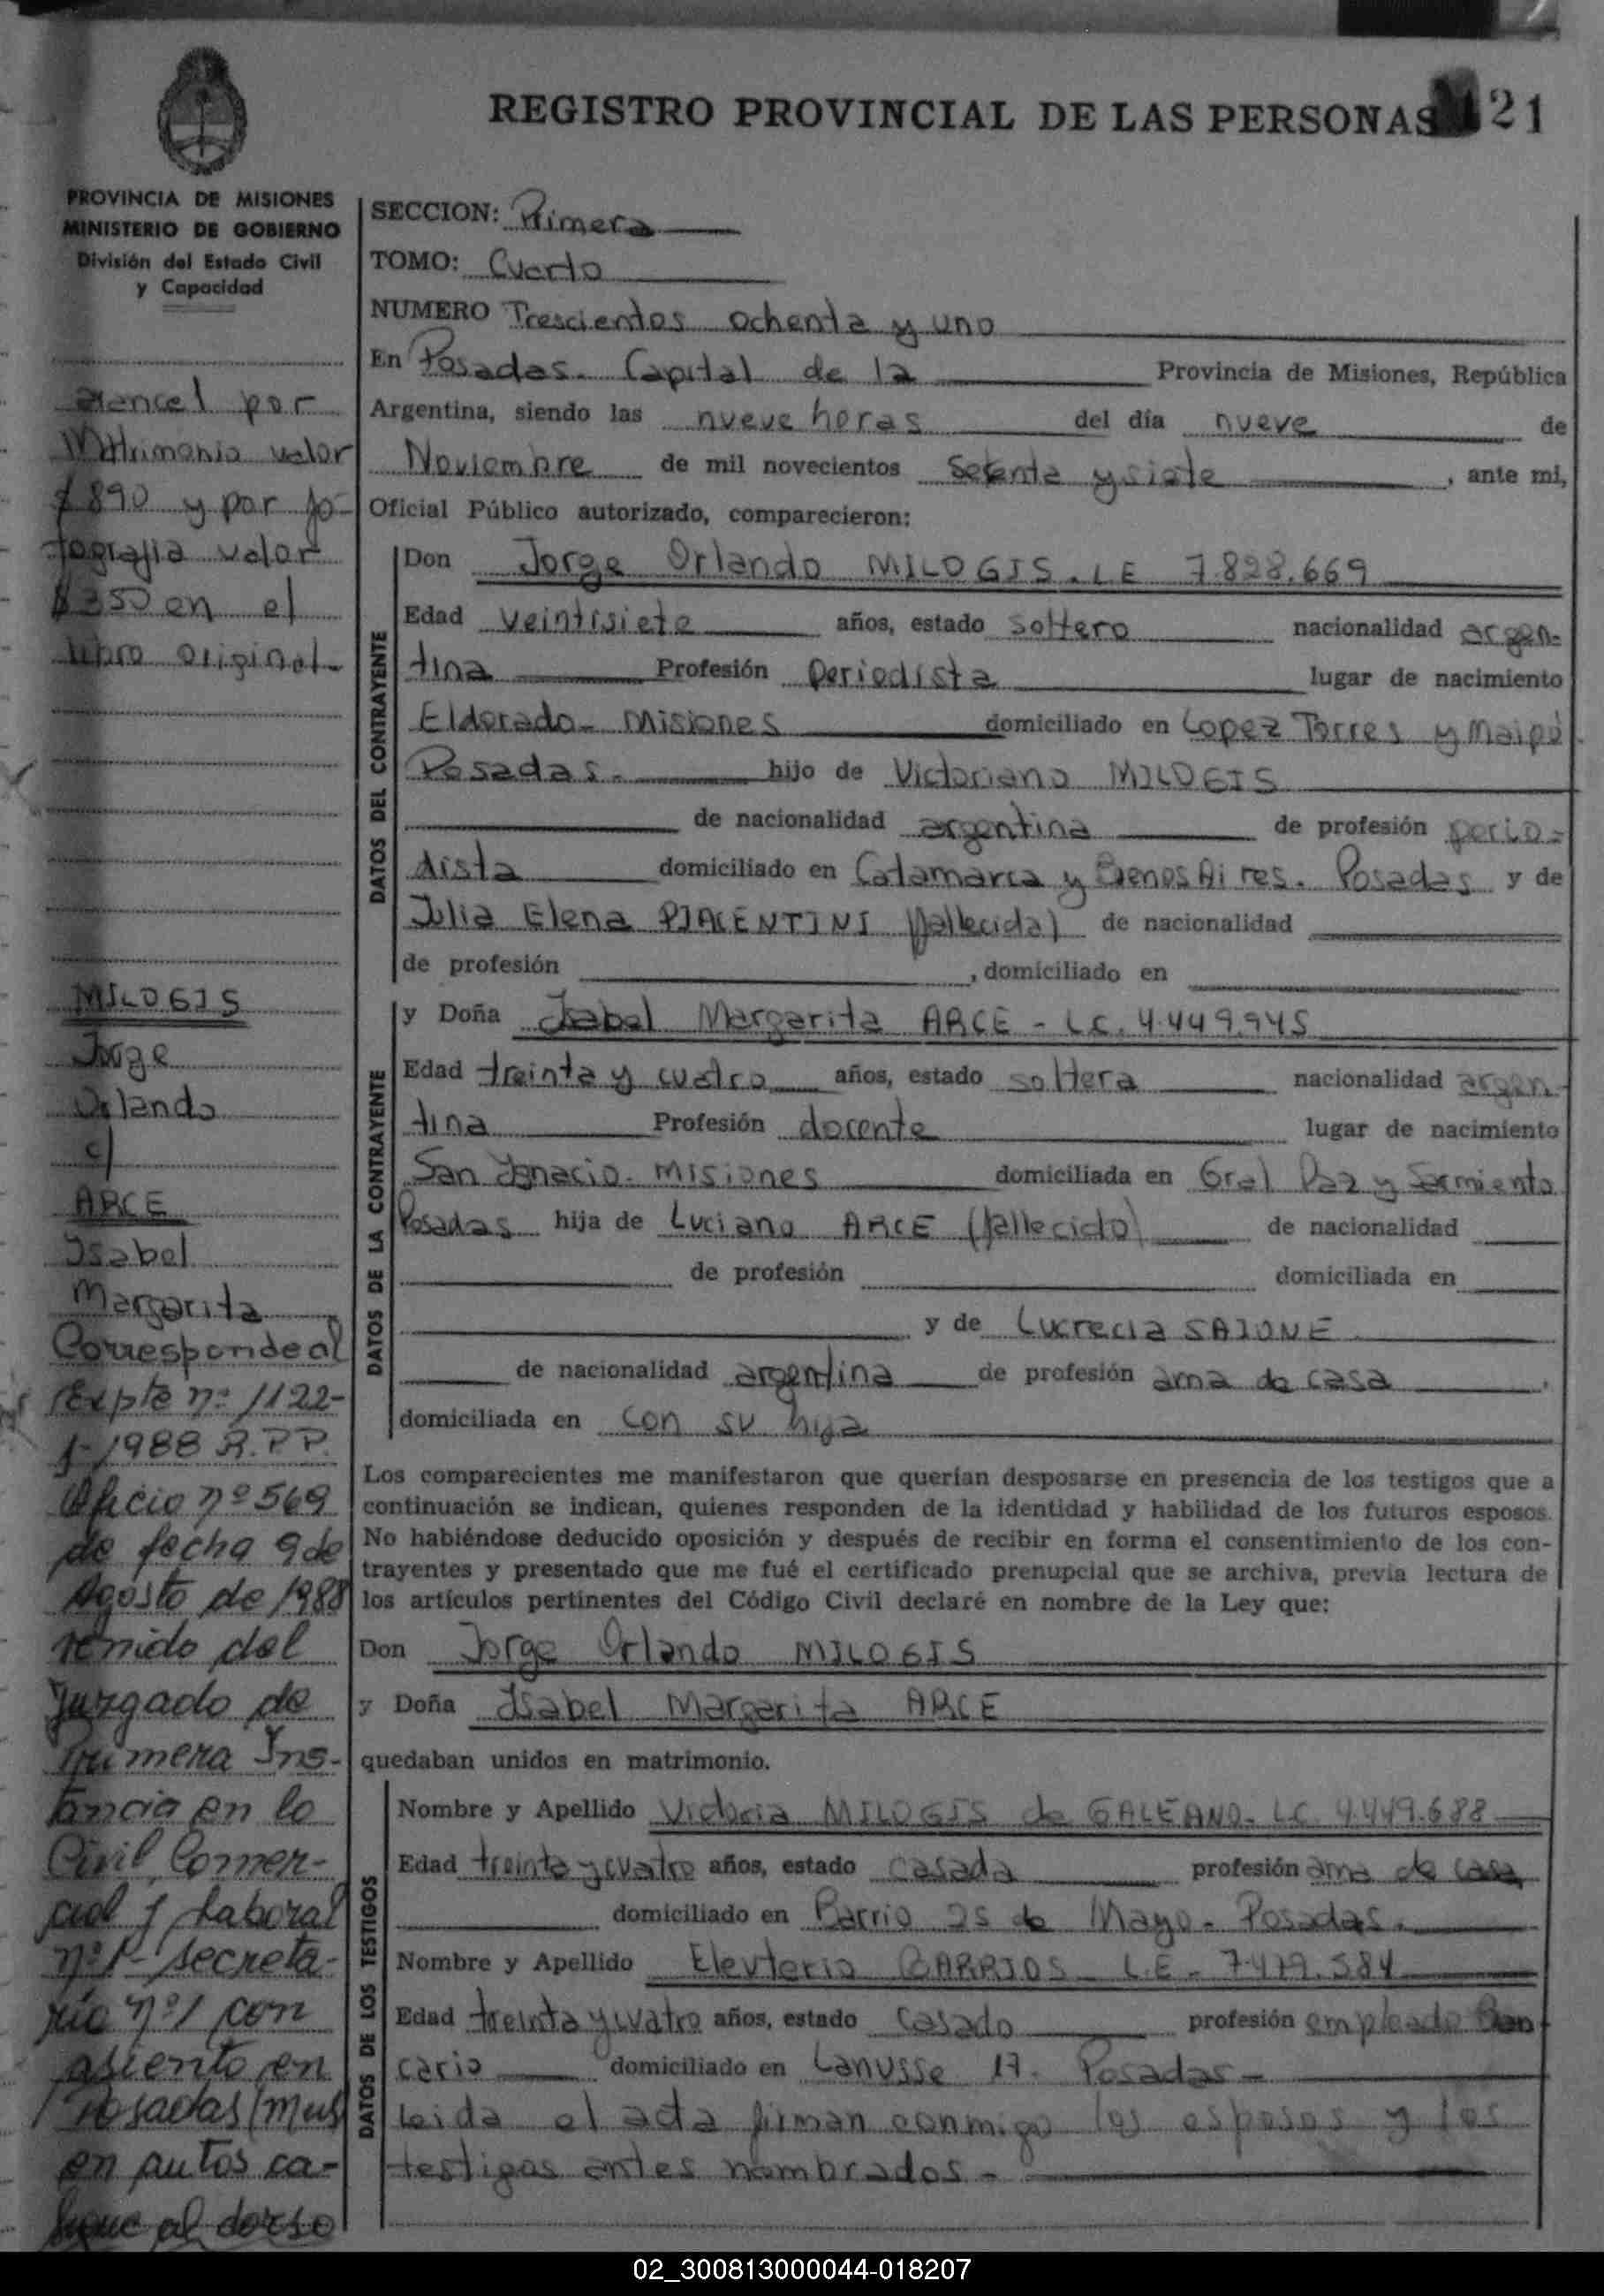 REGISTRO PROVINCIAL DE LAS PERSONAS 121
PROVINCIA DE MISIONES
MINISTERIO DE GOBIERNO
División del Estado Civil
y Capacidad
Arancel por
Matrimonio valor
$890 y por fo-
tografia valor
$350 en el
libro original-
MILOGIS
Jorge
Orlando
c/
ARCE
Isabel
Margarita
Corresponde al
Expte nº 1122-
1988 R.P.P.
Oficio nº 569
de fecha 9 de
Agosto de 1988
venido del
Juzgado de
Primera Ins-
tancia en lo
Civil, Comer-
cial y Laboral
nº 1- secreta-
ria nº 1 con
asiento en
Posadas/Mnes
en autos ca-
sigue al dorso
SECCION: Primera
TOMO: Cuarto
NUMERO Trescientos ochenta y uno
En Posadas. Capital de la Provincia de Misiones, República
Argentina, siendo las nueve horas del día nueve de
Noviembre de mil novecientos setenta y siete, ante mi,
Oficial Público autorizado, comparecieron:
DATOS DEL CONTRAYENTE
Don Jorge Orlando MILOGIS. LE 7.828.669
Edad veintisiete años, estado soltero nacionalidad argen-
tina Profesión periodista lugar de nacimiento
Eldorado- Misiones domiciliado en Lopez Torres y Maipú
Posadas.- hijo de Victoriano MILOGIS
de nacionalidad argentina de profesión perio-
dista domiciliado en Catamarca y Buenos Aires. Posadas y de
Julia Elena PIACENTINI (fallecida) de nacionalidad
de profesión , domiciliado en
DATOS DE LA CONTRAYENTE
y Doña Isabel Margarita ARCE - LC. 4.449.945
Edad treinta y cuatro años, estado soltera nacionalidad argen-
tina Profesión docente lugar de nacimiento
San Ignacio- Misiones domiciliada en Gral Paz y Sarmiento
Posadas hija de Luciano ARCE (fallecido) de nacionalidad
de profesión domiciliada en
y de Lucrecia SAIONE
de nacionalidad argentina de profesión ama de casa ,
domiciliada en con su hija
Los comparecientes me manifestaron que querían desposarse en presencia de los testigos que a
continuación se indican, quienes responden de la identidad y habilidad de los futuros esposos.
No habiéndose deducido oposición y después de recibir en forma el consentimiento de los con-
trayentes y presentado que me fué el certificado prenupcial que se archiva, previa lectura de
los artículos pertinentes del Código Civil declaré en nombre de la Ley que:
Don Jorge Orlando MILOGIS
y Doña Isabel Margarita ARCE
quedaban unidos en matrimonio.
DATOS DE LOS TESTIGOS
Nombre y Apellido Victoria MILOGIS de GALEANO- LC. 4.449.688
Edad treinta y cuatro años, estado casada profesión ama de casa
domiciliado en Barrio 25 de Mayo- Posadas.
Nombre y Apellido Eleuterio BARRIOS- L.E- 7.479.584
Edad treinta y cuatro años, estado casado profesión empleado Ban
cario domiciliado en Lanusse 17- Posadas-
Leida el acta firman conmigo los esposos y los
testigos antes nombrados-
02_300813000044-018207